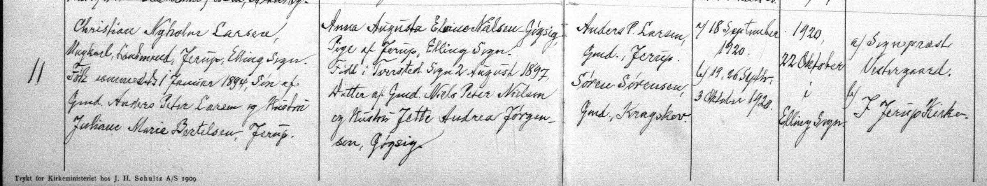 11
Christian Nyholm Larsen,
Ungkarl, Landmand, Jerup, Elling Sogn.
Født sammesteds 1 Januar 1894, Søn af
Gmd. Anders Peter Larsen og Hustru
Juliane Marie Bertelsen, Jerup.
Anna Augusta Elaine Nielsen Gøgsig,
Pige af Jerup, Elling Sogn.
Født i Torslev Sogn 2 August 1897,
Datter af Gmd. Niels Peter Nielsen
og Hustru Jette Andrea Jørgen-
sen, Gøgsig.
Anders P. Larsen,
Gmd., Jerup.
Søren Sørensen,
Gmd., Kragskov
a/ 18 September
1920.
b/ 19, 26 Septbr.,
3 Oktober 1920
1920.
22 Oktober
i
Elling Sogn
a/ Sognepræst
Vestergaard.
b/
I Jerup Kirke.
Trykt for Kirkeministeriet hos J. H. Schultz A/S 1909